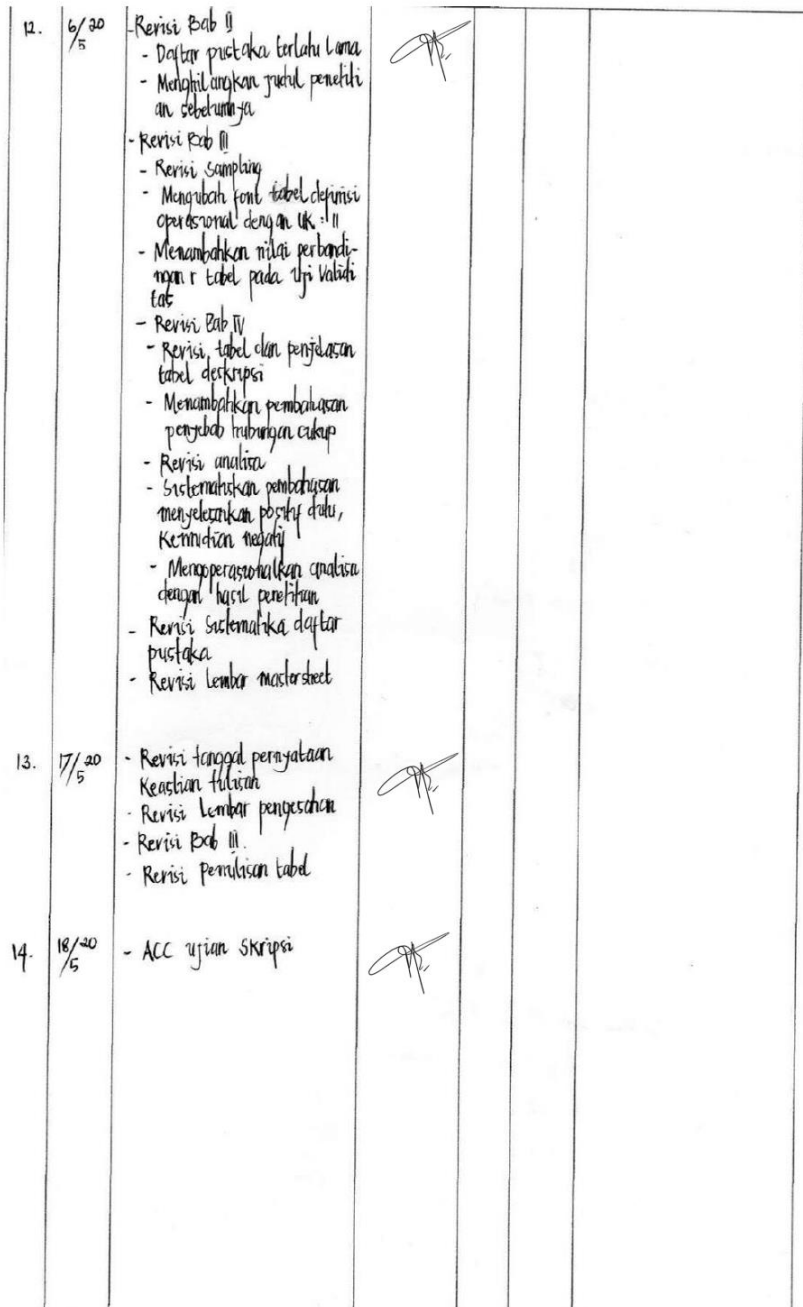 12. 6/5 20 - Revisi Bab II
- Daftar pustaka terlalu lama
- Menghilangkan judul peneliti
an sebelumnya
- Revisi Bab III
- Revisi sampling
- Mengubah font tabel definisi
operasional dengan uk : 11
- Menambahkan nilai perbandi-
ngan r tabel pada uji validi
tas
- Revisi Bab IV
- Revisi tabel dan penjelasan
tabel deskripsi
- Menambahkan pembahasan
penyebab hubungan cukup
- Revisi analisa
- Sistematiskan pembahasan
menyelesaikan positif dulu,
Kemudian negatif
- Mengoperasionalkan analisa
dengan hasil penelitian
- Revisi Sistematika daftar
pustaka
- Revisi Lembar mastersheet
13. 17/5 20 - Revisi tanggal pernyataan
Keaslian tulisan
- Revisi Lembar pengesahan
- Revisi Bab III.
- Revisi Penulisan tabel
14. 18/5 20 - ACC ujian Skripsi